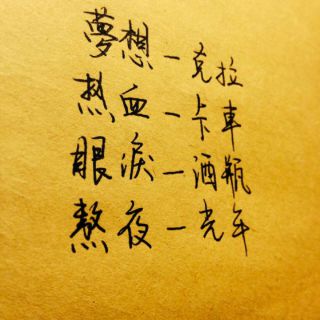 夢想一克拉
热血一卡車
眼淚一酒瓶
熬夜一光年